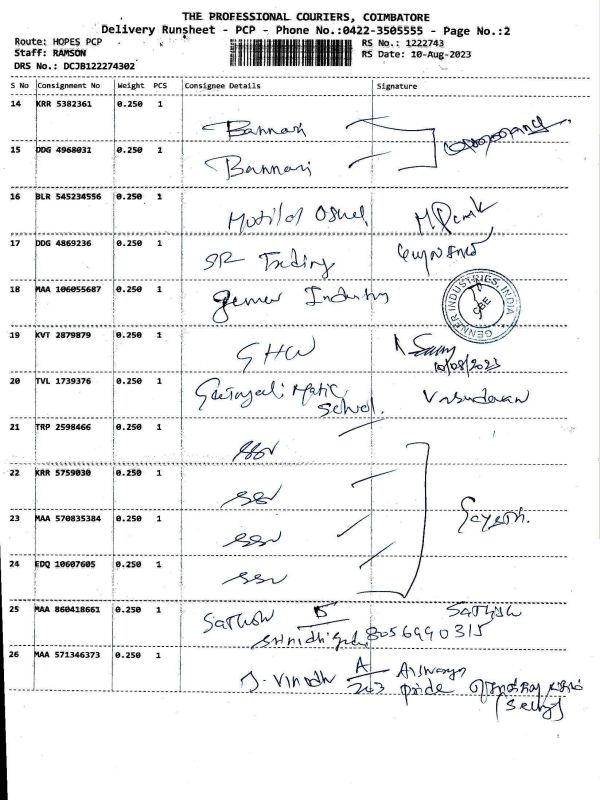 THE PROFESSIONAL COURIERS, COIMBATORE
Delivery Runsheet - PCP - Phone No.:0422-3505555 - Page No.:2
Route: HOPES PCP RS No.: 1222743
Staff: RAMSON RS Date: 10-Aug-2023
DRS No.: DCJB122274302
S No Consignment No Weight PCS Consignee Details Signature
14 KRR 5382361 0.250 1
Bannari
15 DDG 4968031 0.250 1
Bannari
16 BLR 545234556 0.250 1
Motilal Oswal
17 DDG 4869236 0.250 1
SR Trading
18 MAA 106055687 0.250 1
Genner Industry
GENNER INDUSTRIES, INDIA
CBE
19 KVT 2879879 0.250 1
GHW
10/08/2023
20 TVL 1739376 0.250 1
Matric School. Vasudevan
21 TRP 2598466 0.250 1
SSV
22 KRR 5759030 0.250 1
SSV
23 MAA 570835384 0.250 1
SSV
24 EDQ 10607605 0.250 1
SSV
25 MAA 860418661 0.250 1
Sathish B Sathish
Srinidhi 8056990315
26 MAA 571346373 0.250 1
J. Vinodh A/203 Aiswarya pride